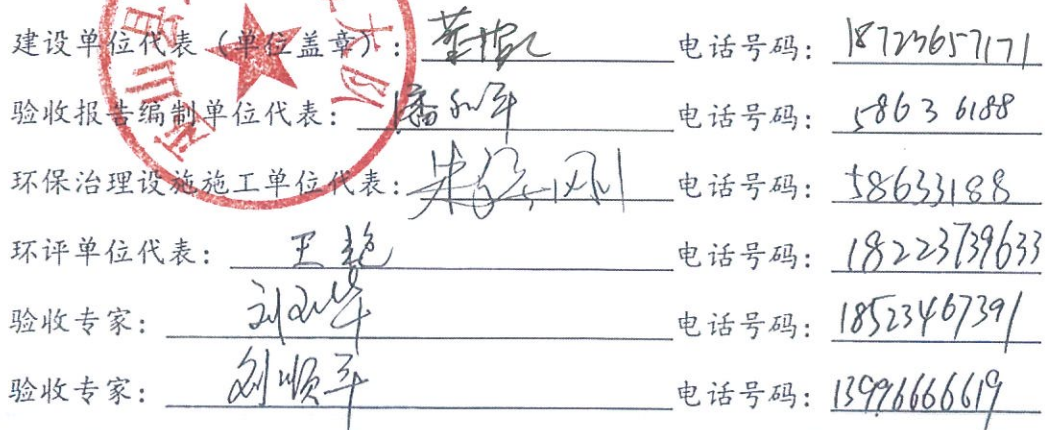 建设单位代表（单位盖章）： 电话号码：18723657171
验收报告编制单位代表： 电话号码：58636188
环保治理设施施工单位代表： 电话号码：58633188
环评单位代表：王艳 电话号码：18223739633
验收专家： 电话号码：18523467391
验收专家：刘顺平 电话号码：13996666619